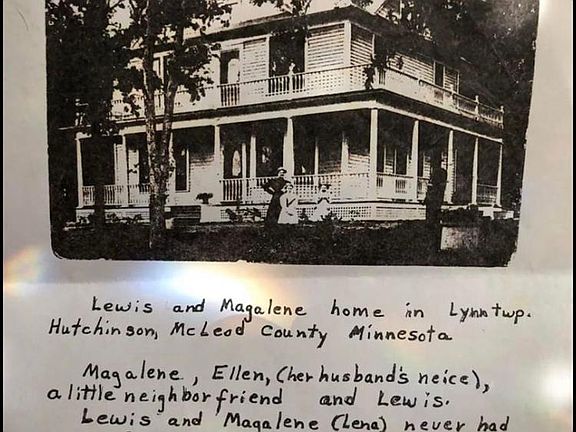 Lewis and Magalene home in Lynn twp.
Hutchinson, McLeod County Minnesota
Magalene, Ellen, (her husband's neice),
a little neighbor friend and Lewis.
Lewis and Magalene (Lena) never had